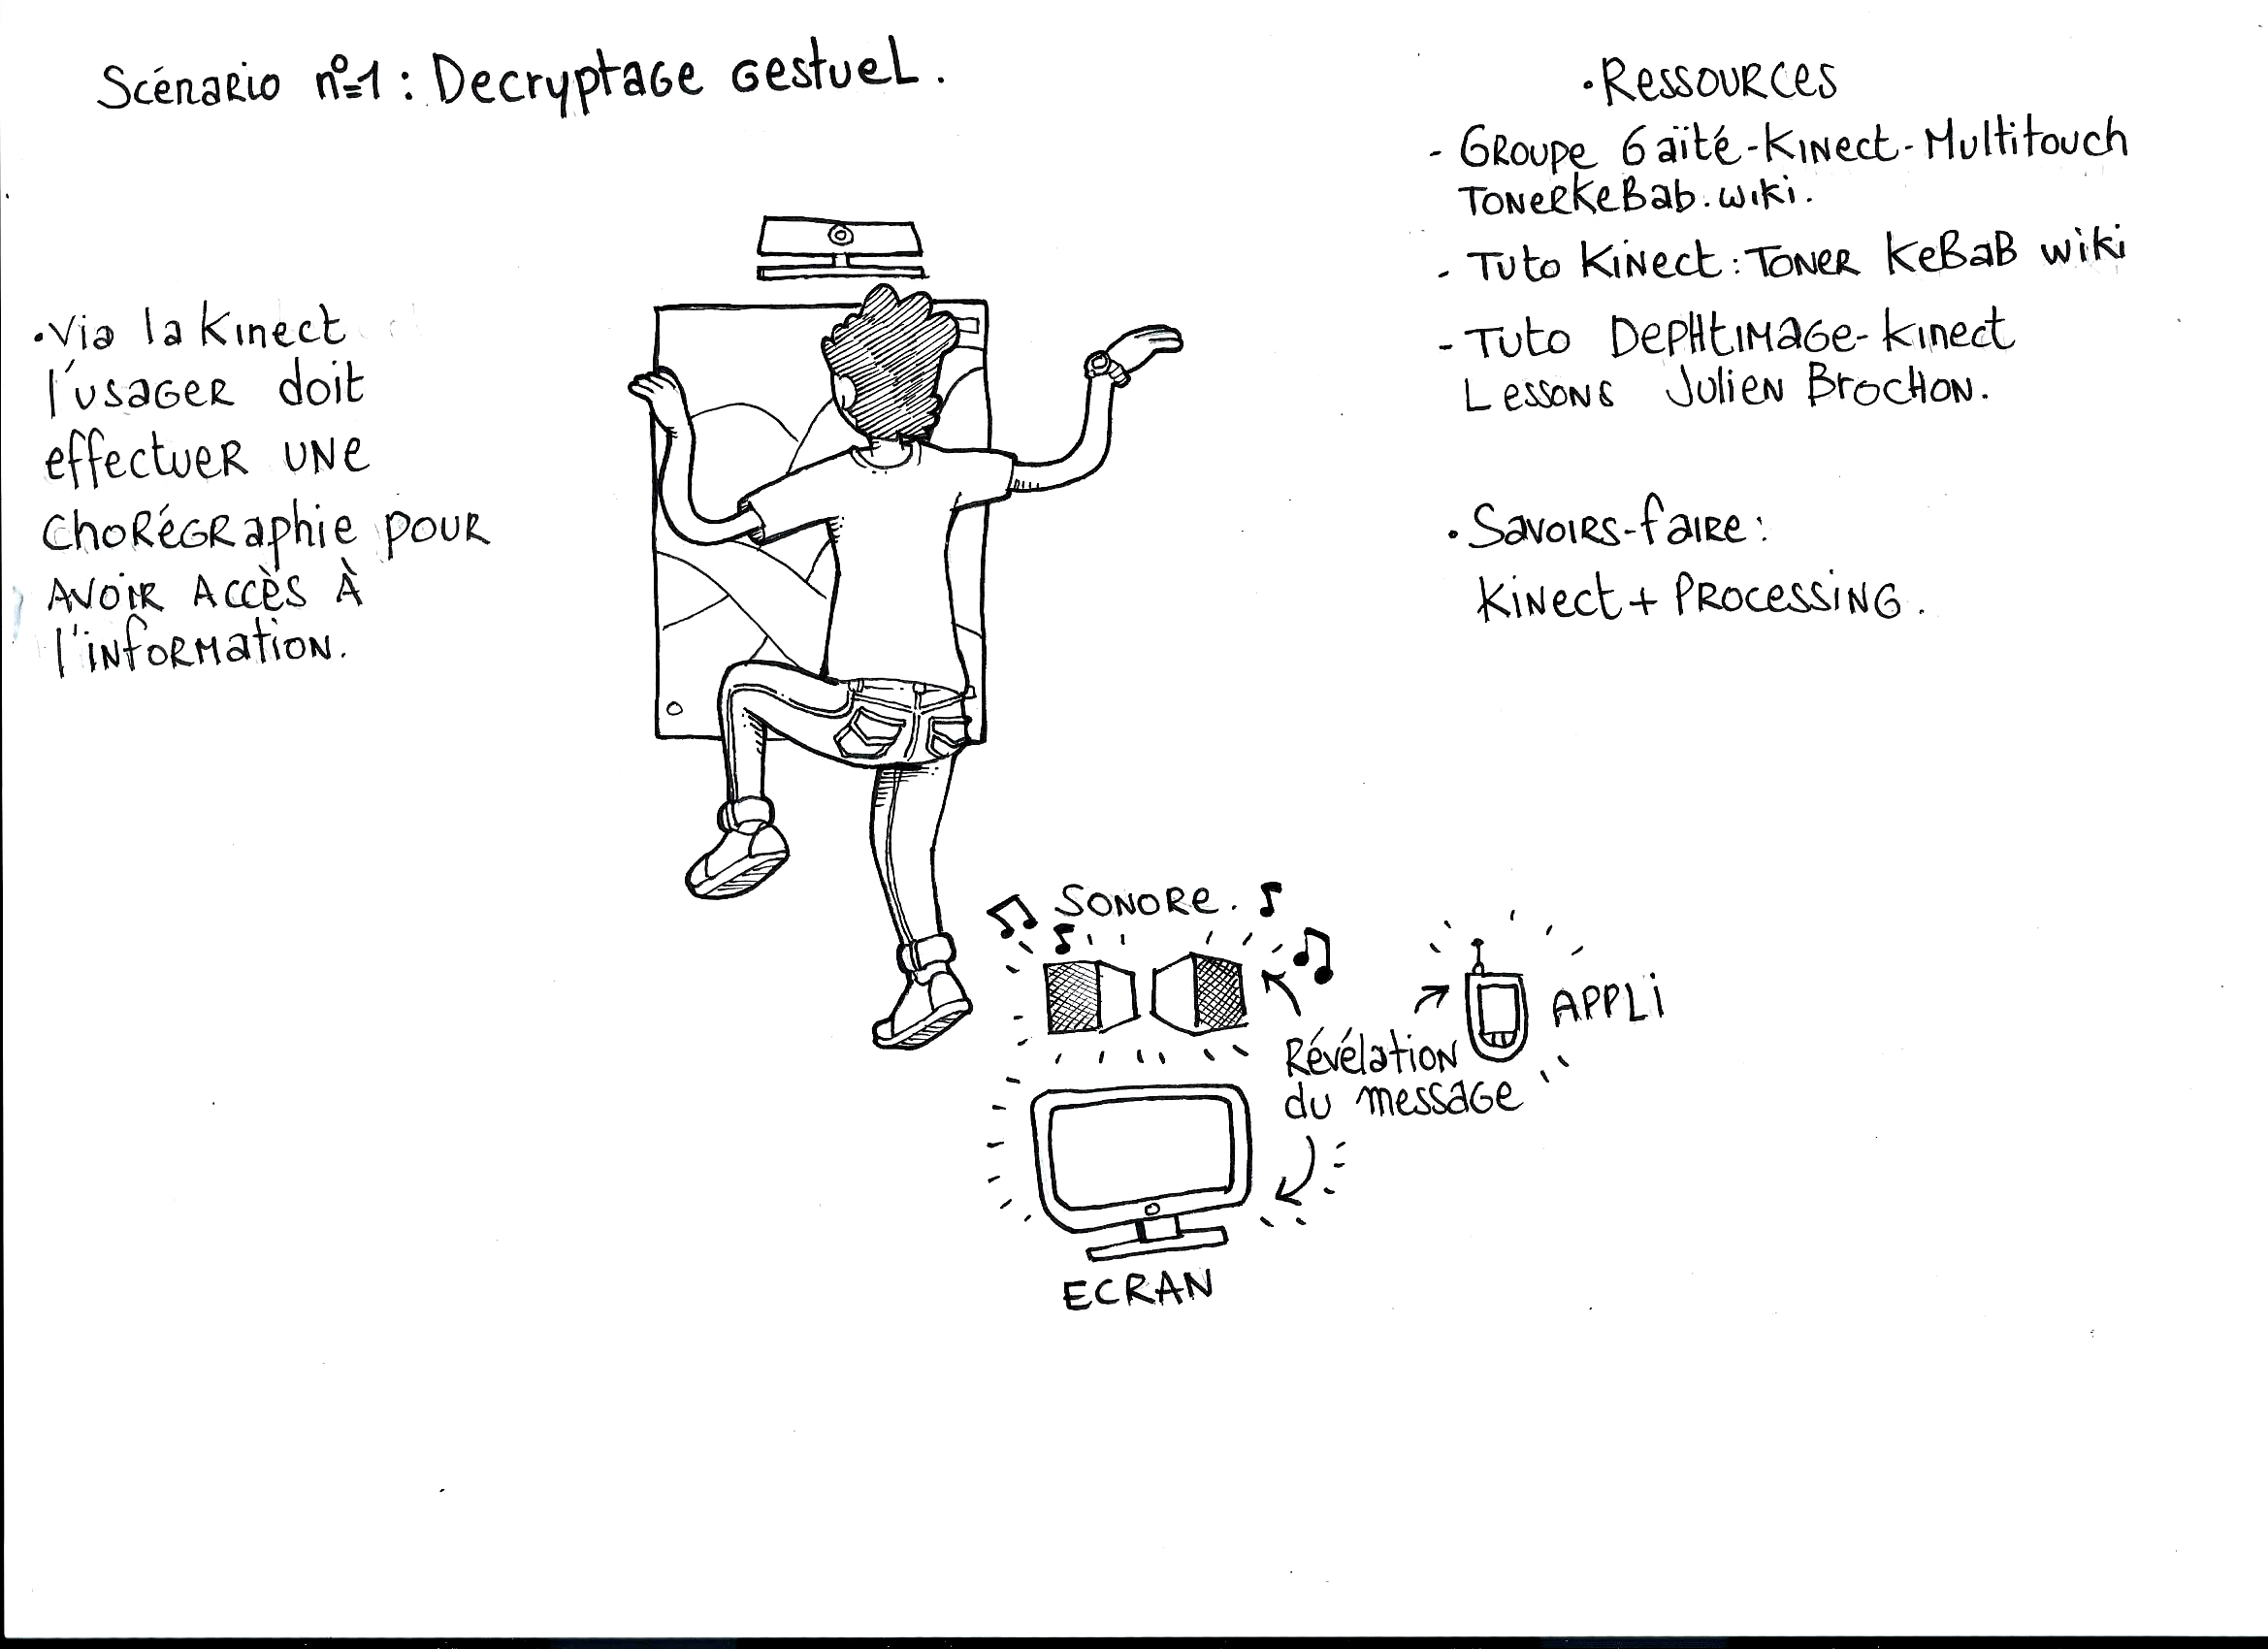 Scénario nº1 : Decryptage Gestuel.
• Via la Kinect
l'usager doit
effectuer une
chorégraphie pour
avoir accès à
l'information.
• Ressources
- Groupe Gaïté-Kinect-Multitouch
Tonerkebab.wiki.
- Tuto Kinect : Toner Kebab wiki
- Tuto Dephtimage-kinect
Lessons Julien Brochon.
• Savoirs-faire :
Kinect + Processing.
Sonore.
Appli
Révélation
du message
ECRAN